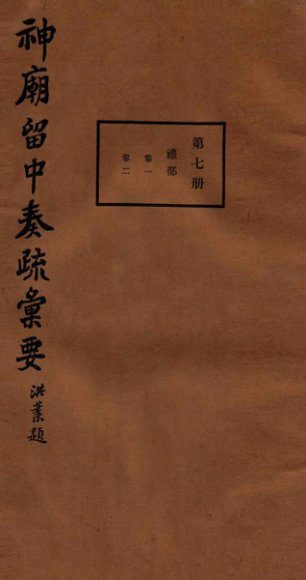 神廟留中奏疏彙要
洪業題
第七册
禮部
卷一
卷二